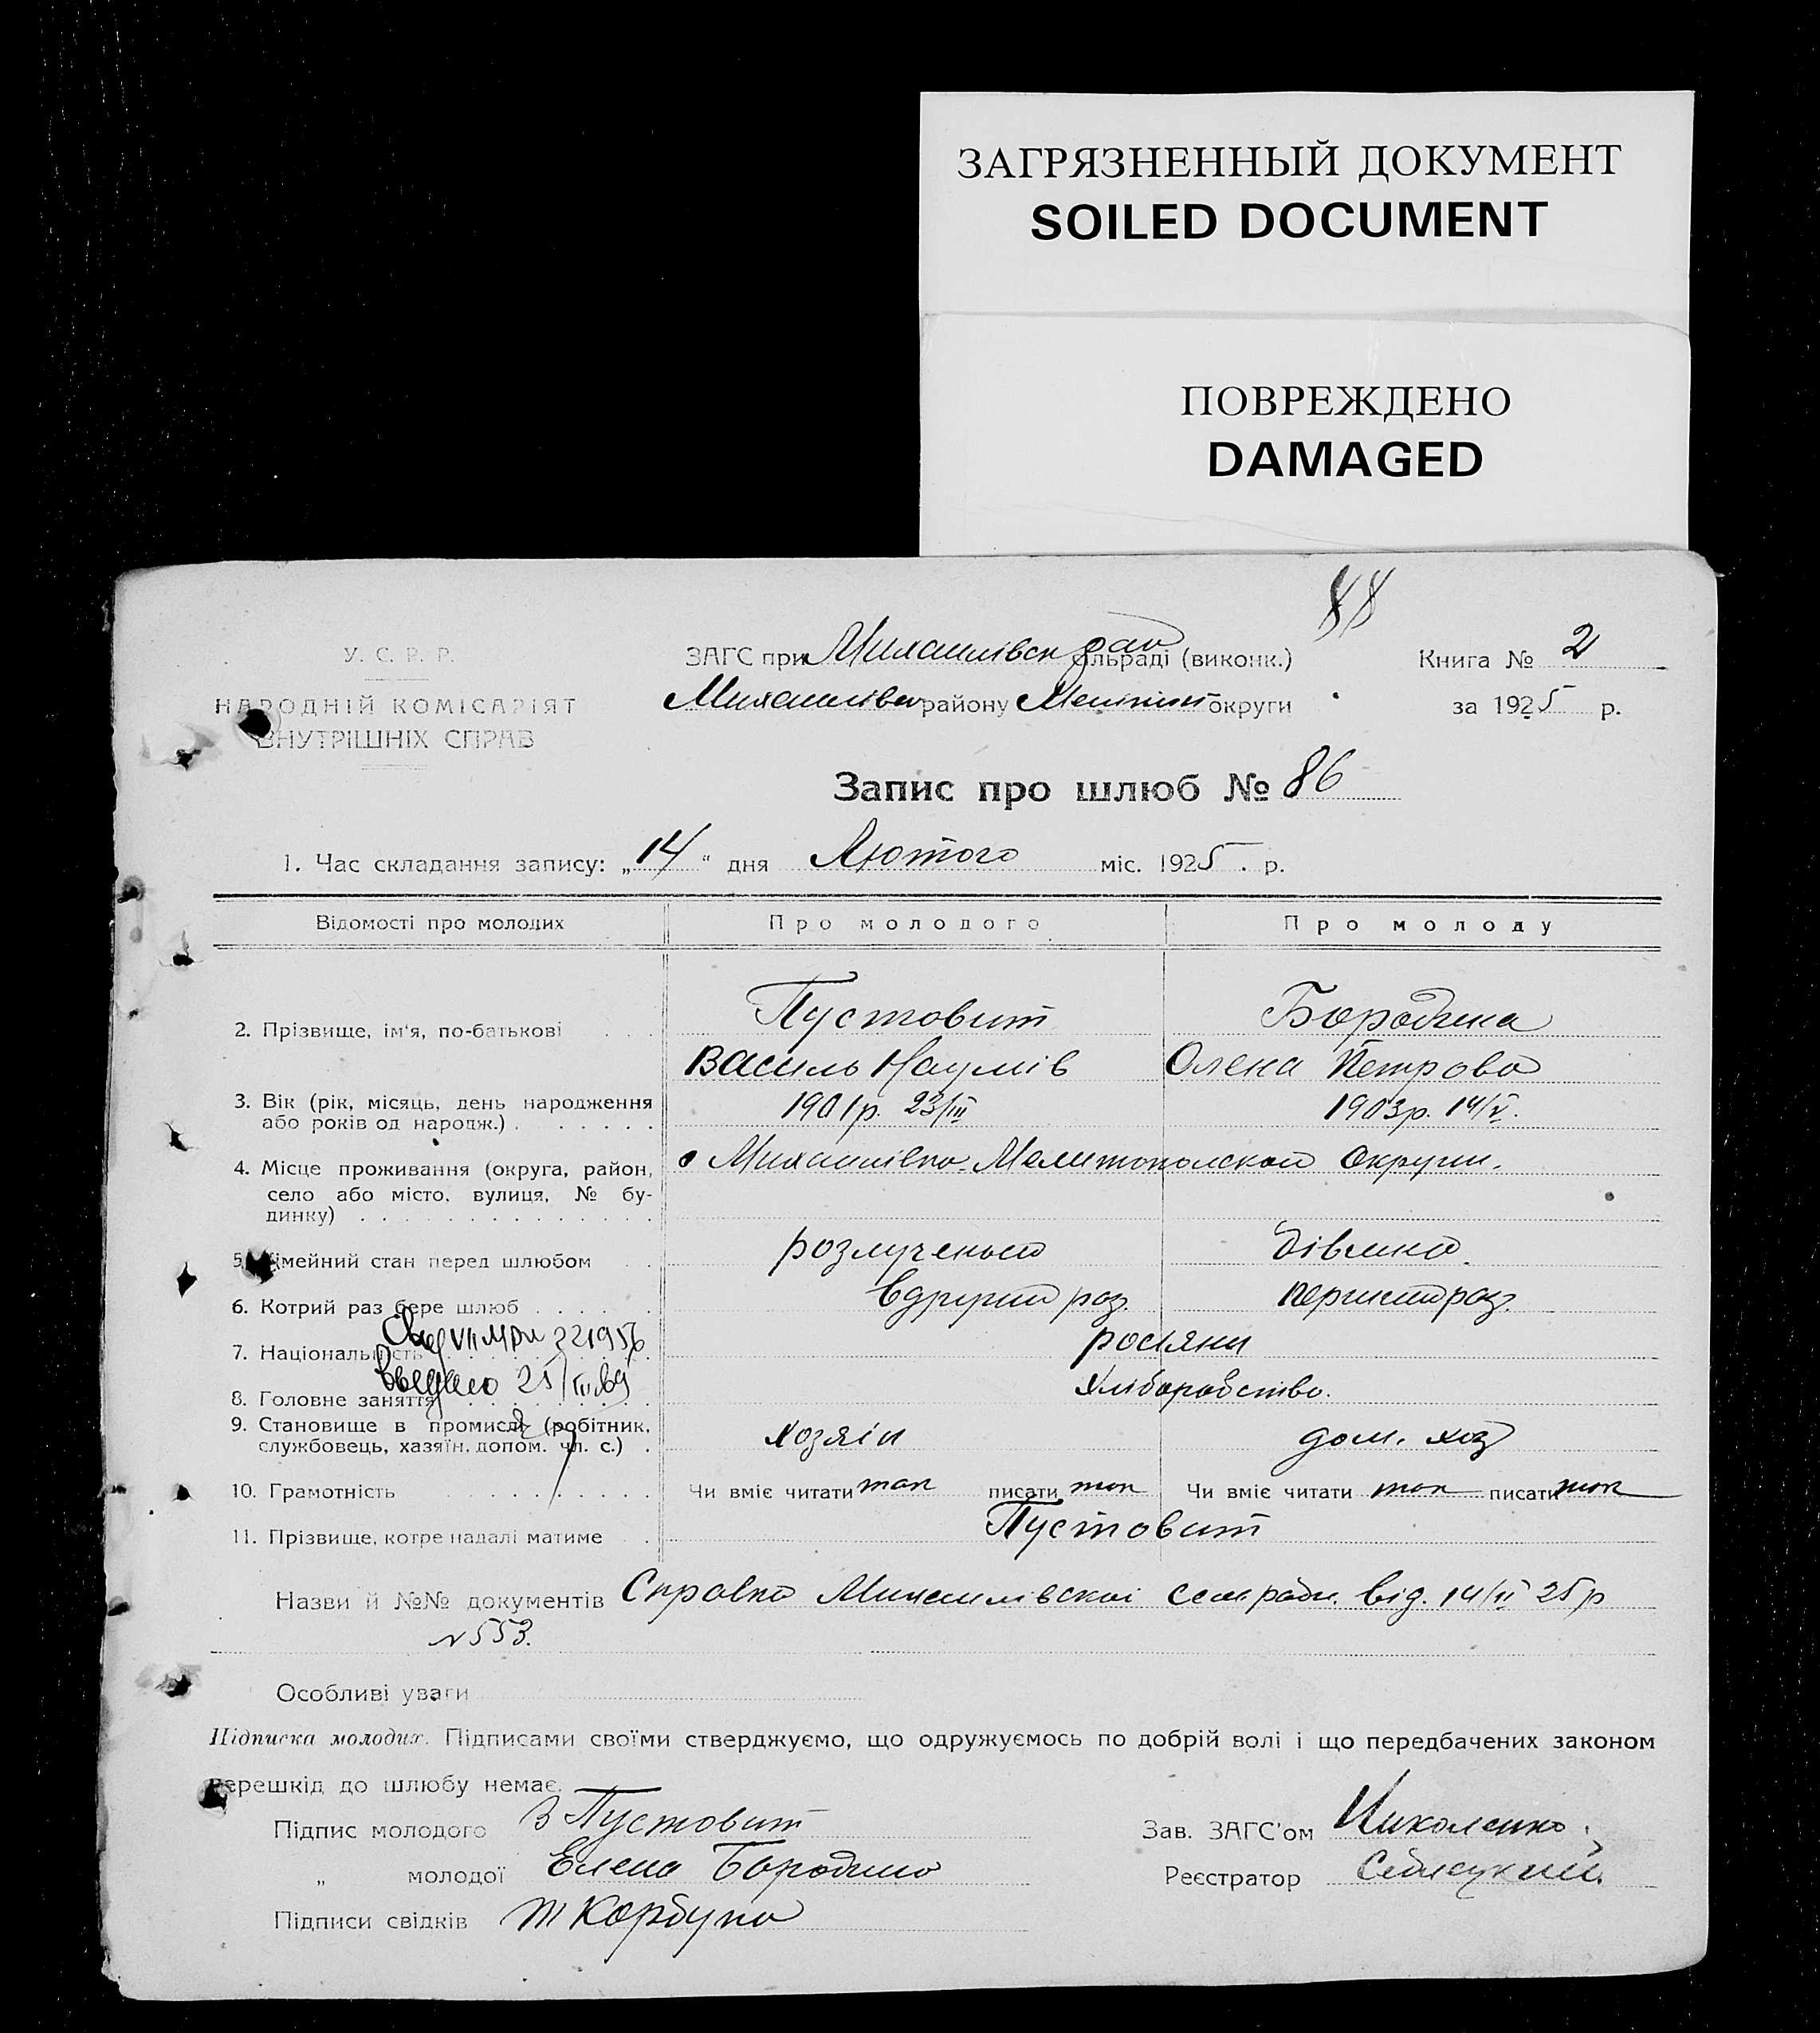 ЗАГРЯЗНЕННЫЙ ДОКУМЕНТ
SOILED DOCUMENT
ПОВРЕЖДЕНО
DAMAGED
88
У. С. Р. Р.
НАРОДНІЙ КОМІСАРІЯТ
ВНУТРІШНІХ СПРАВ
ЗАГС при Михайлівск рай сільраді (виконк.)
Михайлівск району Мелітип округи
Книга № 2
за 1925 р.
Запис про шлюб № 86
1. Час складання запису: „14“ дня Лютого міс. 1925. р.
Відомості про молодих Про молодого Про молоду
2. Прізвище, ім'я, по-батькові Пустовит Бородина
Василь Наумів Олена Петрова
3. Вік (рік, місяць, день народження 1901р. 23/III 1903р. 14/V.
або років од народж.)
4. Місце проживання (округа, район, с Михайлівка Мелитопольскои Округи.
село або місто, вулиця, № бу-
динку)
5. Сімейний стан перед шлюбом розлученый дівиця
6. Котрий раз бере шлюб вдругий раз. перший раз.
7. Національність росіяни
VII 221956
8. Головне заняття хліборобство.
25/
9. Становище в промислі (робітник, хозяін дом. хоз
службовець, хазяїн, допом. чл. с.)
10. Грамотність Чи вміє читати так писати так Чи вміє читати так писати так
11. Прізвище, котре надалі матиме Пустовит
Назви й №№ документів Справка Михайлівскоі сельради. від. 14/II 25р
N 553.
Особливі уваги
Підписка молодих. Підписами своїми стверджуємо, що одружуємось по добрій волі і що передбачених законом
перешкід до шлюбу немає.
Підпис молодого В Пустовит
„ молодої Елена Бородина
Підписи свідків
Зав. ЗАГС'ом Николенко
Реєстратор